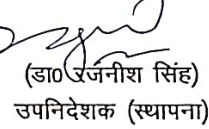 (डा० रजनीश सिंह)
उपनिदेशक (स्थापना)